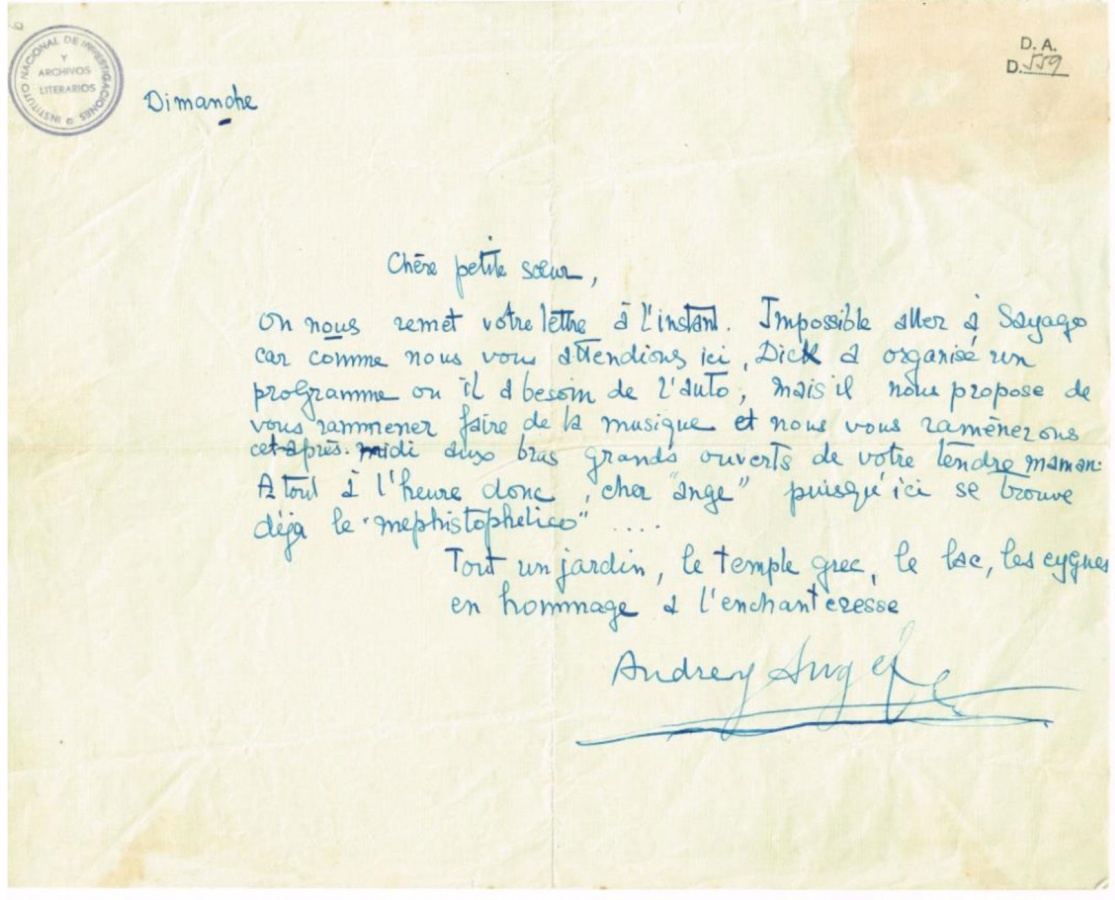 INSTITUTO NACIONAL DE INVESTIGACIONES
Y
ARCHIVOS
LITERARIOS
D. A.
D. 559
Dimanche
Chère petite sœur,
On nous remet votre lettre à l'instant. Impossible aller à Sayago
car comme nous vous attendions ici, Dick a organisé un
programme ou il a besoin de l'auto, mais il nous propose de
vous rammener faire de la musique et nous vous ramènerons
cet après-midi aux bras grands ouverts de votre tendre maman.
A tout à l'heure donc, cher "ange" puisqu'ici se trouve
déja le "mephistophelico" ....
Tout un jardin, le temple grec, le lac, les cygnes
en hommage a l'enchanteresse
Audrey